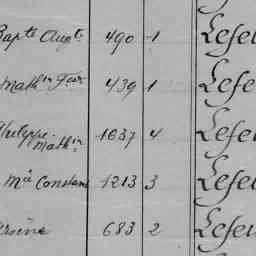 Bapte Augte 490 1 Lefe
Mathin Fçois 439 1 Lefe
Phelippe Mathin 1637 4 Lefe
Ma Constant 1213 3 Lefe
Arsène 683 2 Lefe